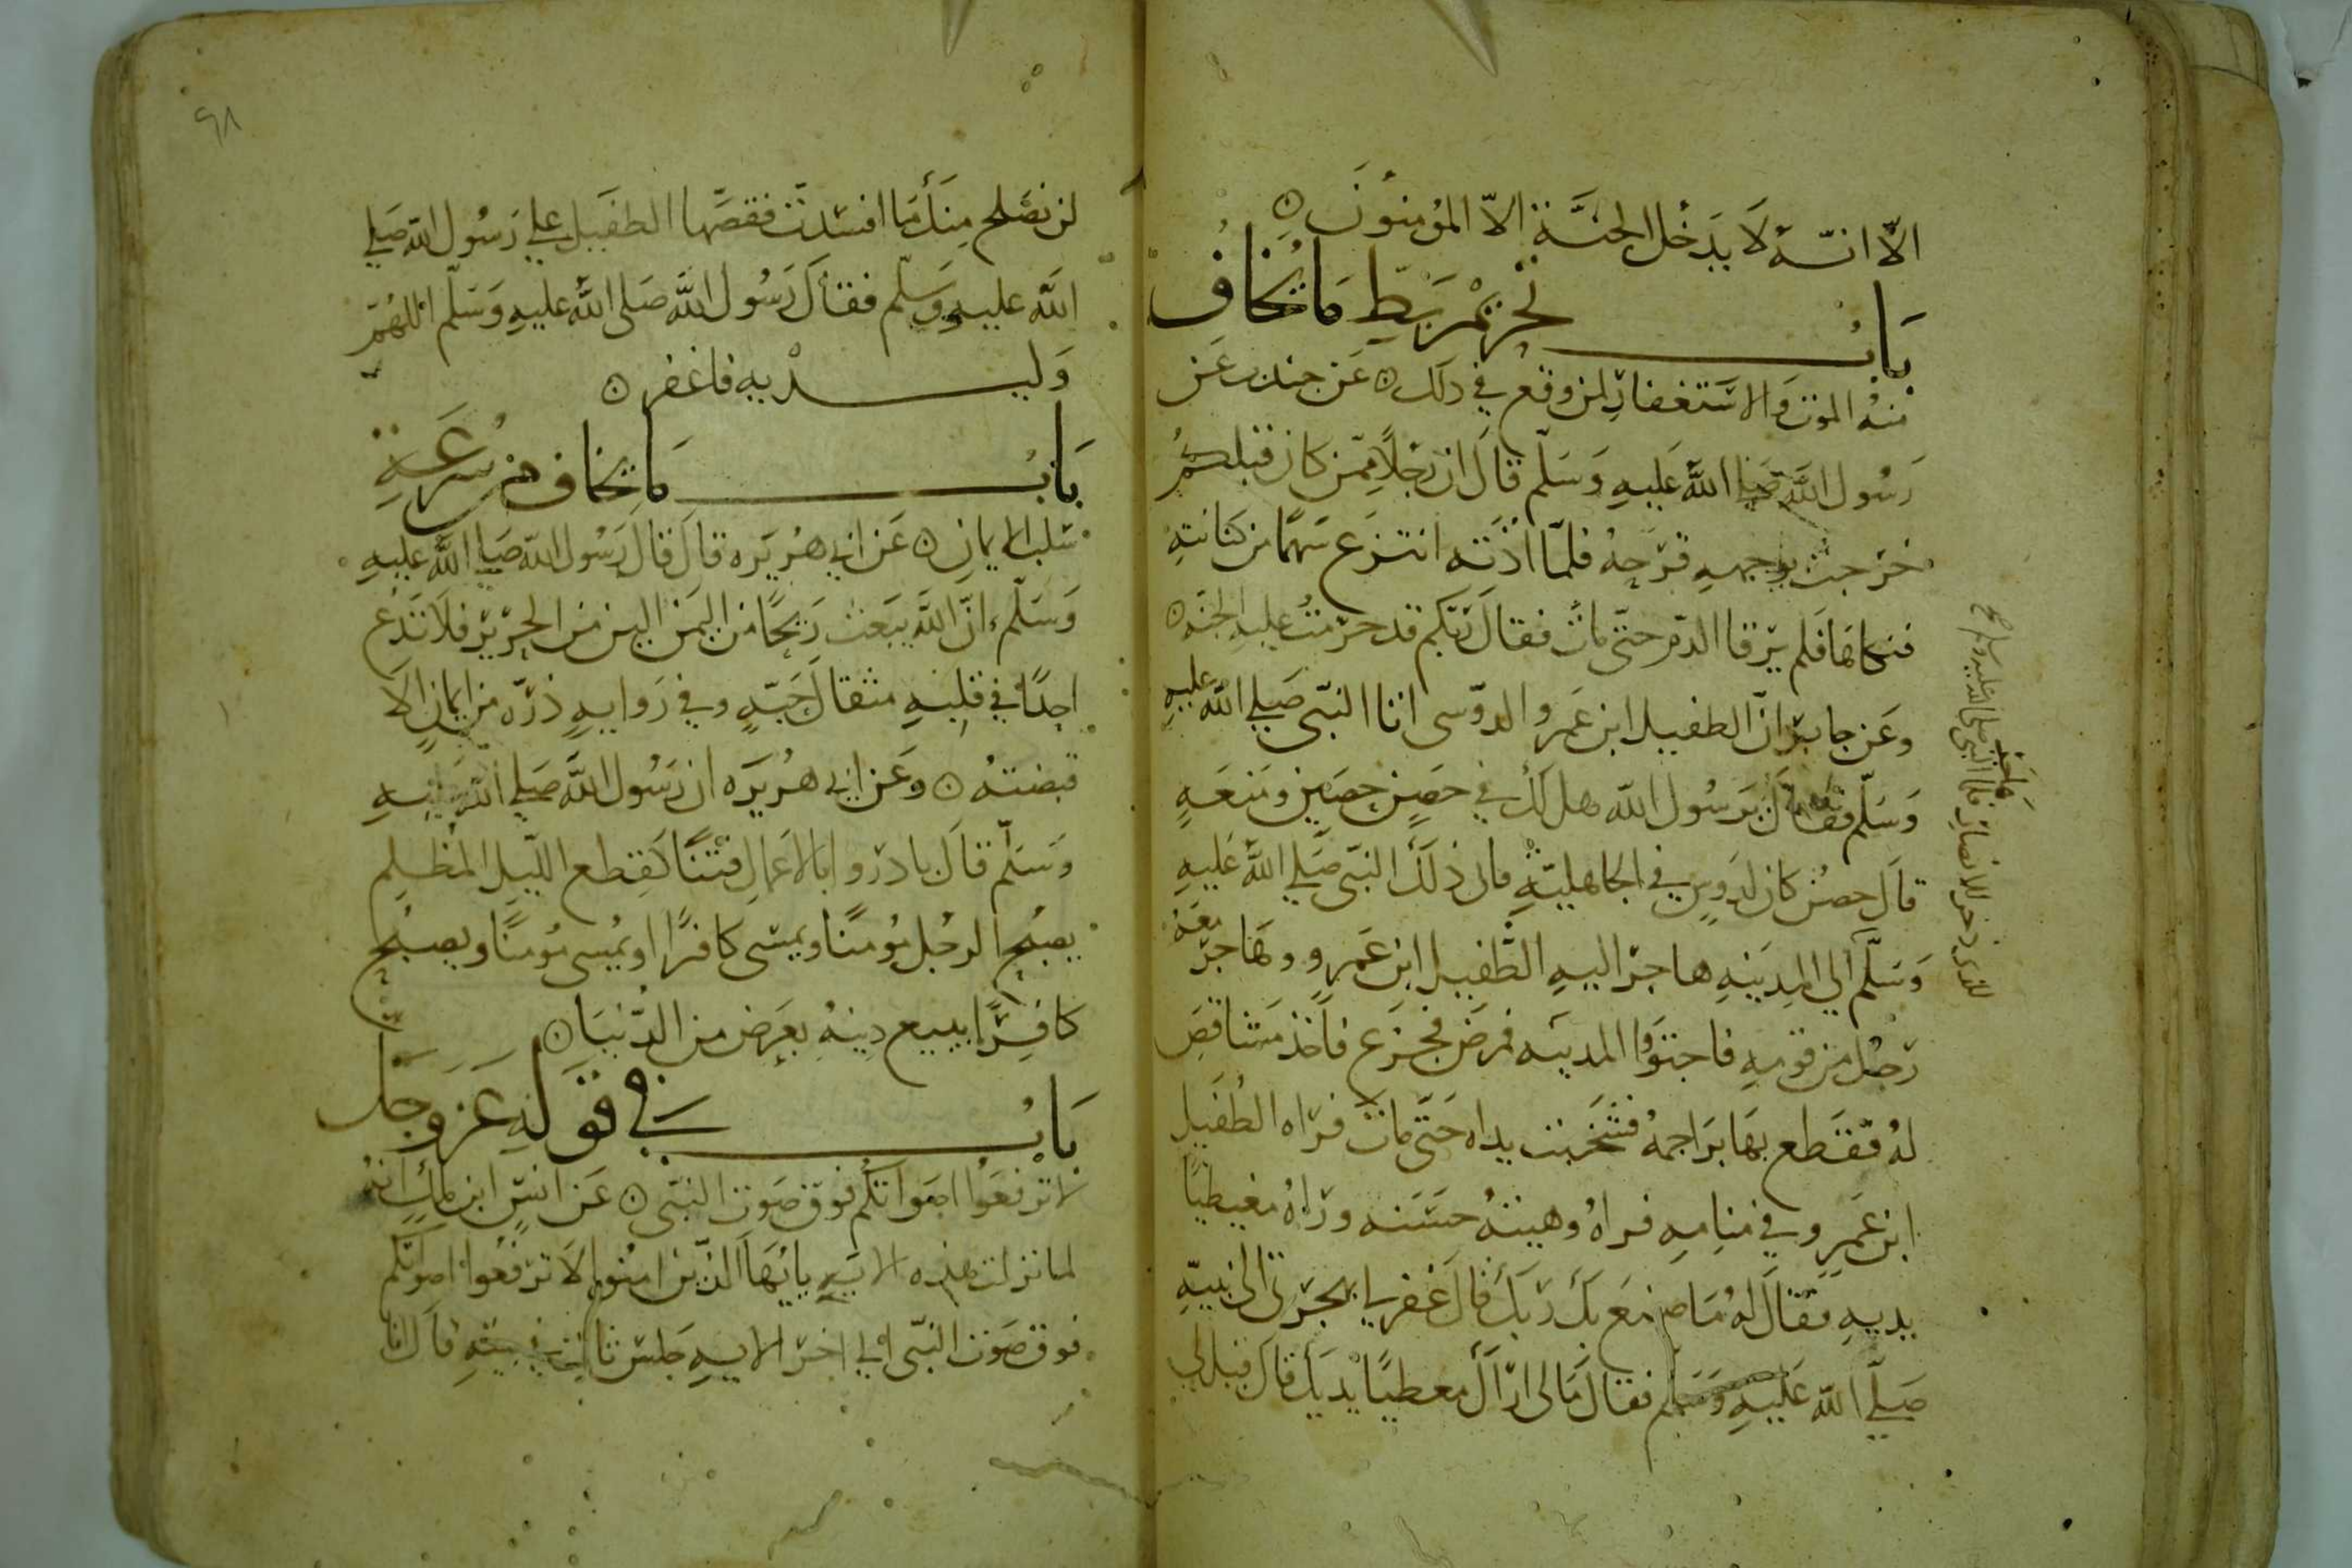 الاّ انّه لَا يَدخُل الجنَّة الاّ المؤمنونَ ه
بَابُ تحريمْ بَطِّ مَا يُخافُ
منهُ الموت وَالاستغفار لمن وقع في ذلك ه عَن جندب عَن
رَسُول الله صَلي اللهُ عَليهِ وَسَلّم قالَ ان رجُلاً ممّن كان قبلكمُ
خرَجت بوجههِ قرَحهُ فلمّا اذَته انتزع سَهمًا من كنانتهِ
فنكاهَا فلم يرقا الدّم حتّى ماتَ فقالَ ربّكم قد حرّمتُ عليهِ الجنّه ه
وعَن جابر انّ الطفيل ابن عَمرو الدوّسى اتا النبّى صَلي الله عليهِ
وَسَلّم فقالَ يرَسُول الله هل لك في حصِن حصَين ومَنعَهٍ
قالَ حصُن كان لدَوسٍ في الجاهليّةِ فابى ذلَكَ النبّى صَلي اللهُ عَليهِ
للذى ذخر للانصار فلما النبى صلى الله عليه وسلم صح
هاجر
وَسَلّمَ الي المدِينهِ هاجرَ اليهِ الطُّفيل ابن عَمرو وهَاجرَ معَهُ
رَجُل من قومهِ فاجتوَوا المدينَه فمرضَ فجزع فاَخذ مَشاقصَ
لهُ فقَطع بهَا برَاجمهُ فشَخَبت يداه حَتّى ماتَ فرَاه الطُفَيل
ابن عَمرٍو في منامهِ فراهُ وهيئتهُ حسَنه ورَاهُ مغيطيًا
يديهِ فقَالَ لهُ مَا صنعَ بكَ ربّكَ قالَ غفر لي بهجرَتى الى نبيّهِ
صَلّي الله عَليهِ وَسَلم فقالَ مَا لى ارَاكَ مغطيًا يدَيكَ قالَ قيل لي
٩٨
لن نصَلح منكَ مَا افسَدتَ فقصّها الطفَيل علي رَسُول الله صَلي
الله عليهِ وَسَلّم فقالَ رَسُول الله صَلى الله عَليهِ وَسَلّم اللهُمّ
وَليديهِ فاغفر ه
بَابُ مَا يخاف من سُرعَةِ
سَلب الايمانِ ه عَن ابي هُريَره قالَ قالَ رَسُول الله صَلي اللهُ عليهِ
وَسَلّم انّ اللهَ يبَعَث ريحًا من اليمَن الين من الحرير فلَا تَدَع
احدًا في قلبهِ مثقالَ حَبّهٍ وفي رَوايهٍ ذرّه من ايمانٍ الَا
قبضتهُ ه وعَن ابي هُريَرَه ان رَسُول الله صَلي الله عليهِ
وَسَلّم قالَ بادرُوا بالاعَمالِ فتْنًا كقِطع اللّيل المُظلِم
يصبُح الرجُل مُومنًا ويمسى كافرًا او يُمسى مُومنًا ويصبُح
كافِرًا يبيع دينهُ بعَرَض من الدُّنيَا ه
بَابُ في قَولهِ عَزَ وَجَل
لا ترفعَوُا اصَواتكُم فوق صَوت النبّى ه عَن انسٍ ابن مٰلكٍ انهُ
لما نزلت هذه الايَهِ يايُهَا الذّين امنُوا لَا ترَفعُوا اصوٰتكم
فوق صَوت النبّى الي اخر الايهِ جَلسَ ثابت في بيتهِ قالَ انا